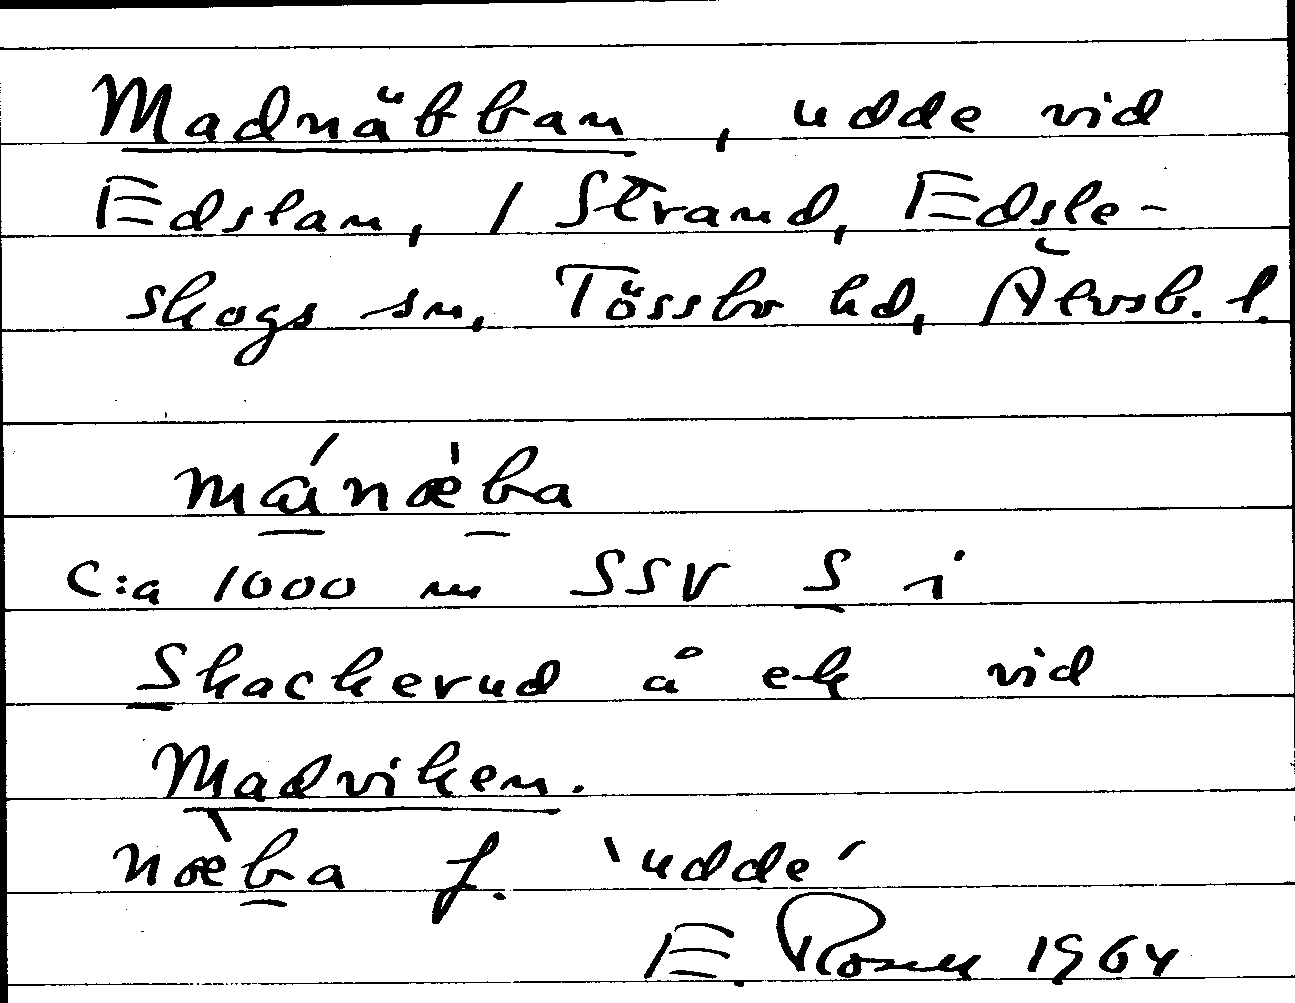 Madnäbban, udde vid
Edslan, 1 Strand, Edsle-
skogs sn, Tössbo hd, Älvsb. l.
mánæ̀ba
C:a 1000 m SSV S i
Skackerud å ek vid
Madviken.
næ̀ba f. 'udde'
E. Rosell 1964